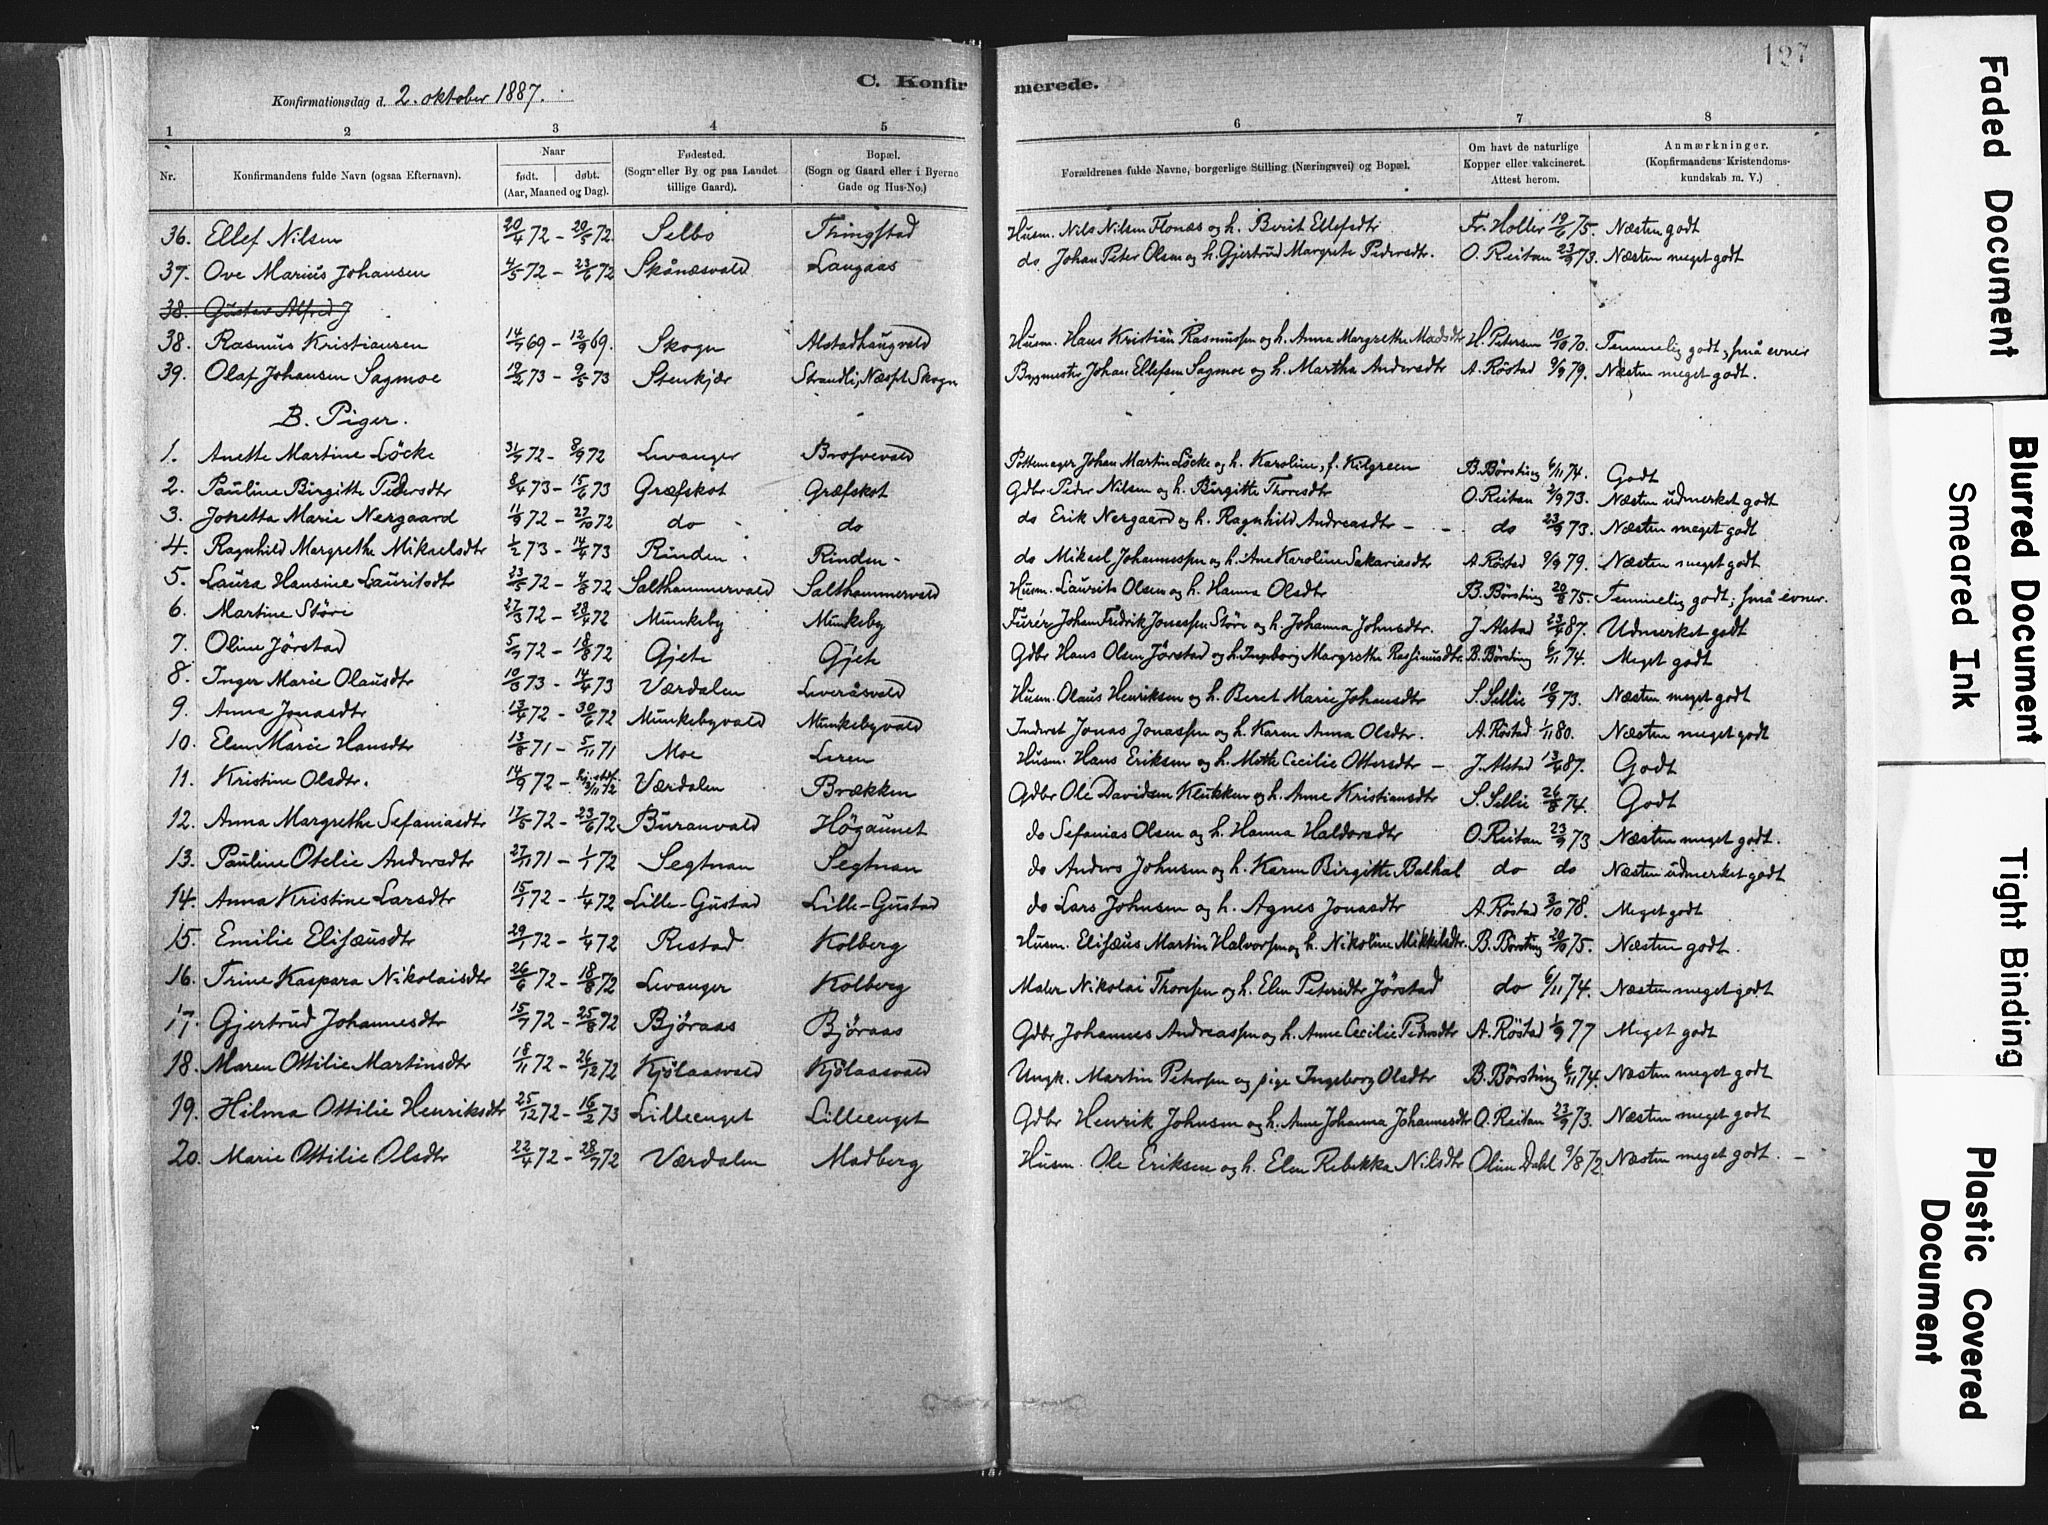 127
C. Konfirmerede.
Konfirmationsdag d. 2. oktober 1887.
1 2 3 4 5 6 7 8
Nr. Konfirmandens fulde Navn (ogsaa Efternavn). Naar født. døbt. (Aar, Maaned og Dag). Fødested. (Sogn eller By og paa Landet tillige Gaard). Bopæl. (Sogn og Gaard eller i Byerne Gade og Hus-No.) Forældrenes fulde Navne, borgerlige Stilling (Næringsvei) og Bopæl. Om havt de naturlige Kopper eller vakcineret. Attest herom. Anmærkninger. (Konfirmandens Kristendomskundskab m. V.)
36. Ellef Nilsen 20/4 72 - 20/5 72. Selbo Thingstad Husm. Nils Nilsen Flonæs og h. Berit Ellefsdtr Fr. Holler 19/6 75. Næsten godt
37. Ove Marius Johansen 4/5 72 - 23/6 72 Skånæsvald Langaas do Johan Peter Olsen og h. Gjertrud Margrete Pedersdtr. O. Reitan 23/9 73. Næsten meget godt
38. Gustav Alfred J
38. Rasmus Kristiansen 14/7 69 - 12/9 69. Skogn Alstadhaugvald Husm. Hans Kristian Rasmussen og h. Anna Margrethe Madsdtr H. Petersen 10/10 70. Temmelig godt, små evner
39. Olaf Johansen Sagmoe 19/2 73 - 9/5 73 Stenkjær Strandli, Næsset Skogn Bygmester Johan Ellefsen Sagmoe og h. Martha Andersdtr A. Röstad 9/9 79. Næsten meget godt.
B. Piger.
1. Anette Martine Löcke 31/7 72 - 8/9 72 Levanger Brosvevald Pottemager Johan Martin Löcke og h. Karoline, f. Kilgreen B. Börsting 6/11 74. Godt
2. Pauline Birgitte Pedersdtr 8/4 73 - 15/6 73 Græfskot Græfskot Gdbr. Peder Nilsen og h. Birgitte Thoresdtr O. Reitan 2/9 73. Næsten udmerket godt
3. Jonetta Marie Nergaard 11/9 72 - 27/10 72 do do do Erik Nergaard og h. Ragnhild Andreasdtr - - do 23/9 73. Næsten meget godt
4. Ragnhild Margrethe Mikaelsdtr 1/2 73 - 14/4 73 Rinden Rinden do Mikael Johannessen og h. Ane Karoline Sakariasdtr A. Röstad 9/9 79. Næsten meget godt
5. Laura Hansine Lauritsdtr 23/5 72 - 4/8 72 Salthammervald Salthammervald Husm. Laurits Olsen og h. Hanna Olsdtr B. Börsting 20/8 75. Temmelig godt; små evner.
6. Martine Störe 27/3 72 - 28/4 72 Munkeby Munkeby Furér Johan Fredrik Jonassen Störe og h. Johanna Johnsdtr. J. Alstad 23/4 87. Udmerket godt
7. Oline Jörstad 5/7 72 - 18/8 72 Gjete Gjete Gdbr Hans Olsen Jörstad og h. Ingeborg Margrethe Rasmusdtr B. Börsting 6/11 74. Meget godt
8. Inger Marie Olausdtr 10/3 73 - 14/4 73 Værdalen Leveråsvald Husm. Olaus Henriksen og h. Beret Marie Johansdtr S. Sellie 10/9 73. Næsten meget godt
9. Anna Jonasdtr 13/4 72 - 30/6 72 Munkebyvald Munkebyvald Inderst Jonas Jonassen og h. Karen Anna Olsdtr. A. Röstad 1/11 80. Næsten meget godt
10. Elen Marie Hansdtr 13/8 71 - 5/11 71 Moe Leren Husm. Hans Eriksen og h. Mette Cecilie Ottersdtr - J. Alstad 13/4 87. Godt
11. Kristine Olsdtr. 14/9 72 - 3/11 72 Værdalen Brækken Gdbr Ole Davidsen Klukken og h. Anne Kristiansdtr S. Sellie 26/8 74. Godt
12. Anna Margrethe Sefaniasdtr 17/5 72 - 23/6 72 Buranvald Högaunet do Sefanias Olsen og h. Hanna Haldorsdtr O. Reitan 23/9 73 Næsten meget godt.
13. Pauline Otelie Andersdtr 27/11 71 - 1/1 72 Segtnan Segtnan do Anders Johnsen og h. Karen Birgitte Balhal do do Næsten udmerket godt
14. Anna Kristine Larsdtr 15/1 72 - 1/4 72 Lille-Gustad Lille-Gustad do Lars Johnsen og h. Agnes Jonasdtr A. Röstad 3/10 78. Meget godt
15. Emilie Elisæusdtr 29/1 72 - 1/4 72 Restad Kolberg Husm. Elisæus Martin Halvorsen og h. Nikoline Mikkelsdtr. B. Börsting 20/10 75. Næsten godt.
16. Trine Kaspara Nikolaisdtr 26/6 72 - 18/8 72 Levanger Kolberg Maler Nikolai Thoresen og h. Elen Petersdtr Jörstad do 6/11 74. Næsten meget godt
17. Gjertrud Johannesdtr 15/7 72 - 25/8 72 Björaas Björaas Gdbr Johannes Andreassen og h. Anne Cecilie Pedersdtr A. Röstad 1/9 77 Meget godt
18. Maren Ottilie Martinsdtr 18/11 72 - 26/12 72 Kjölaasvald Kjölaasvald Ungk. Martin Petersen og pige Ingeborg Olsdtr B. Börsting 6/11 74. Næsten meget godt
19. Hilma Ottilie Henriksdtr 25/12 72 - 16/2 73 Lilleenget Lilleenget Gdbr Henrik Johnsen og h. Anne Johanna Johannesdtr O. Reitan 23/9 73. Næsten meget godt
20. Marie Ottilie Olsdtr 22/4 72 - 28/7 72 Værdalen Madberg Husm. Ole Eriksen og h. Elen Rebekka Nilsdtr Olum Dahl 9/8 72 Næsten meget godt. -
Faded Document
Blurred Document
Smeared Ink
Tight Binding
Plastic Covered
Document